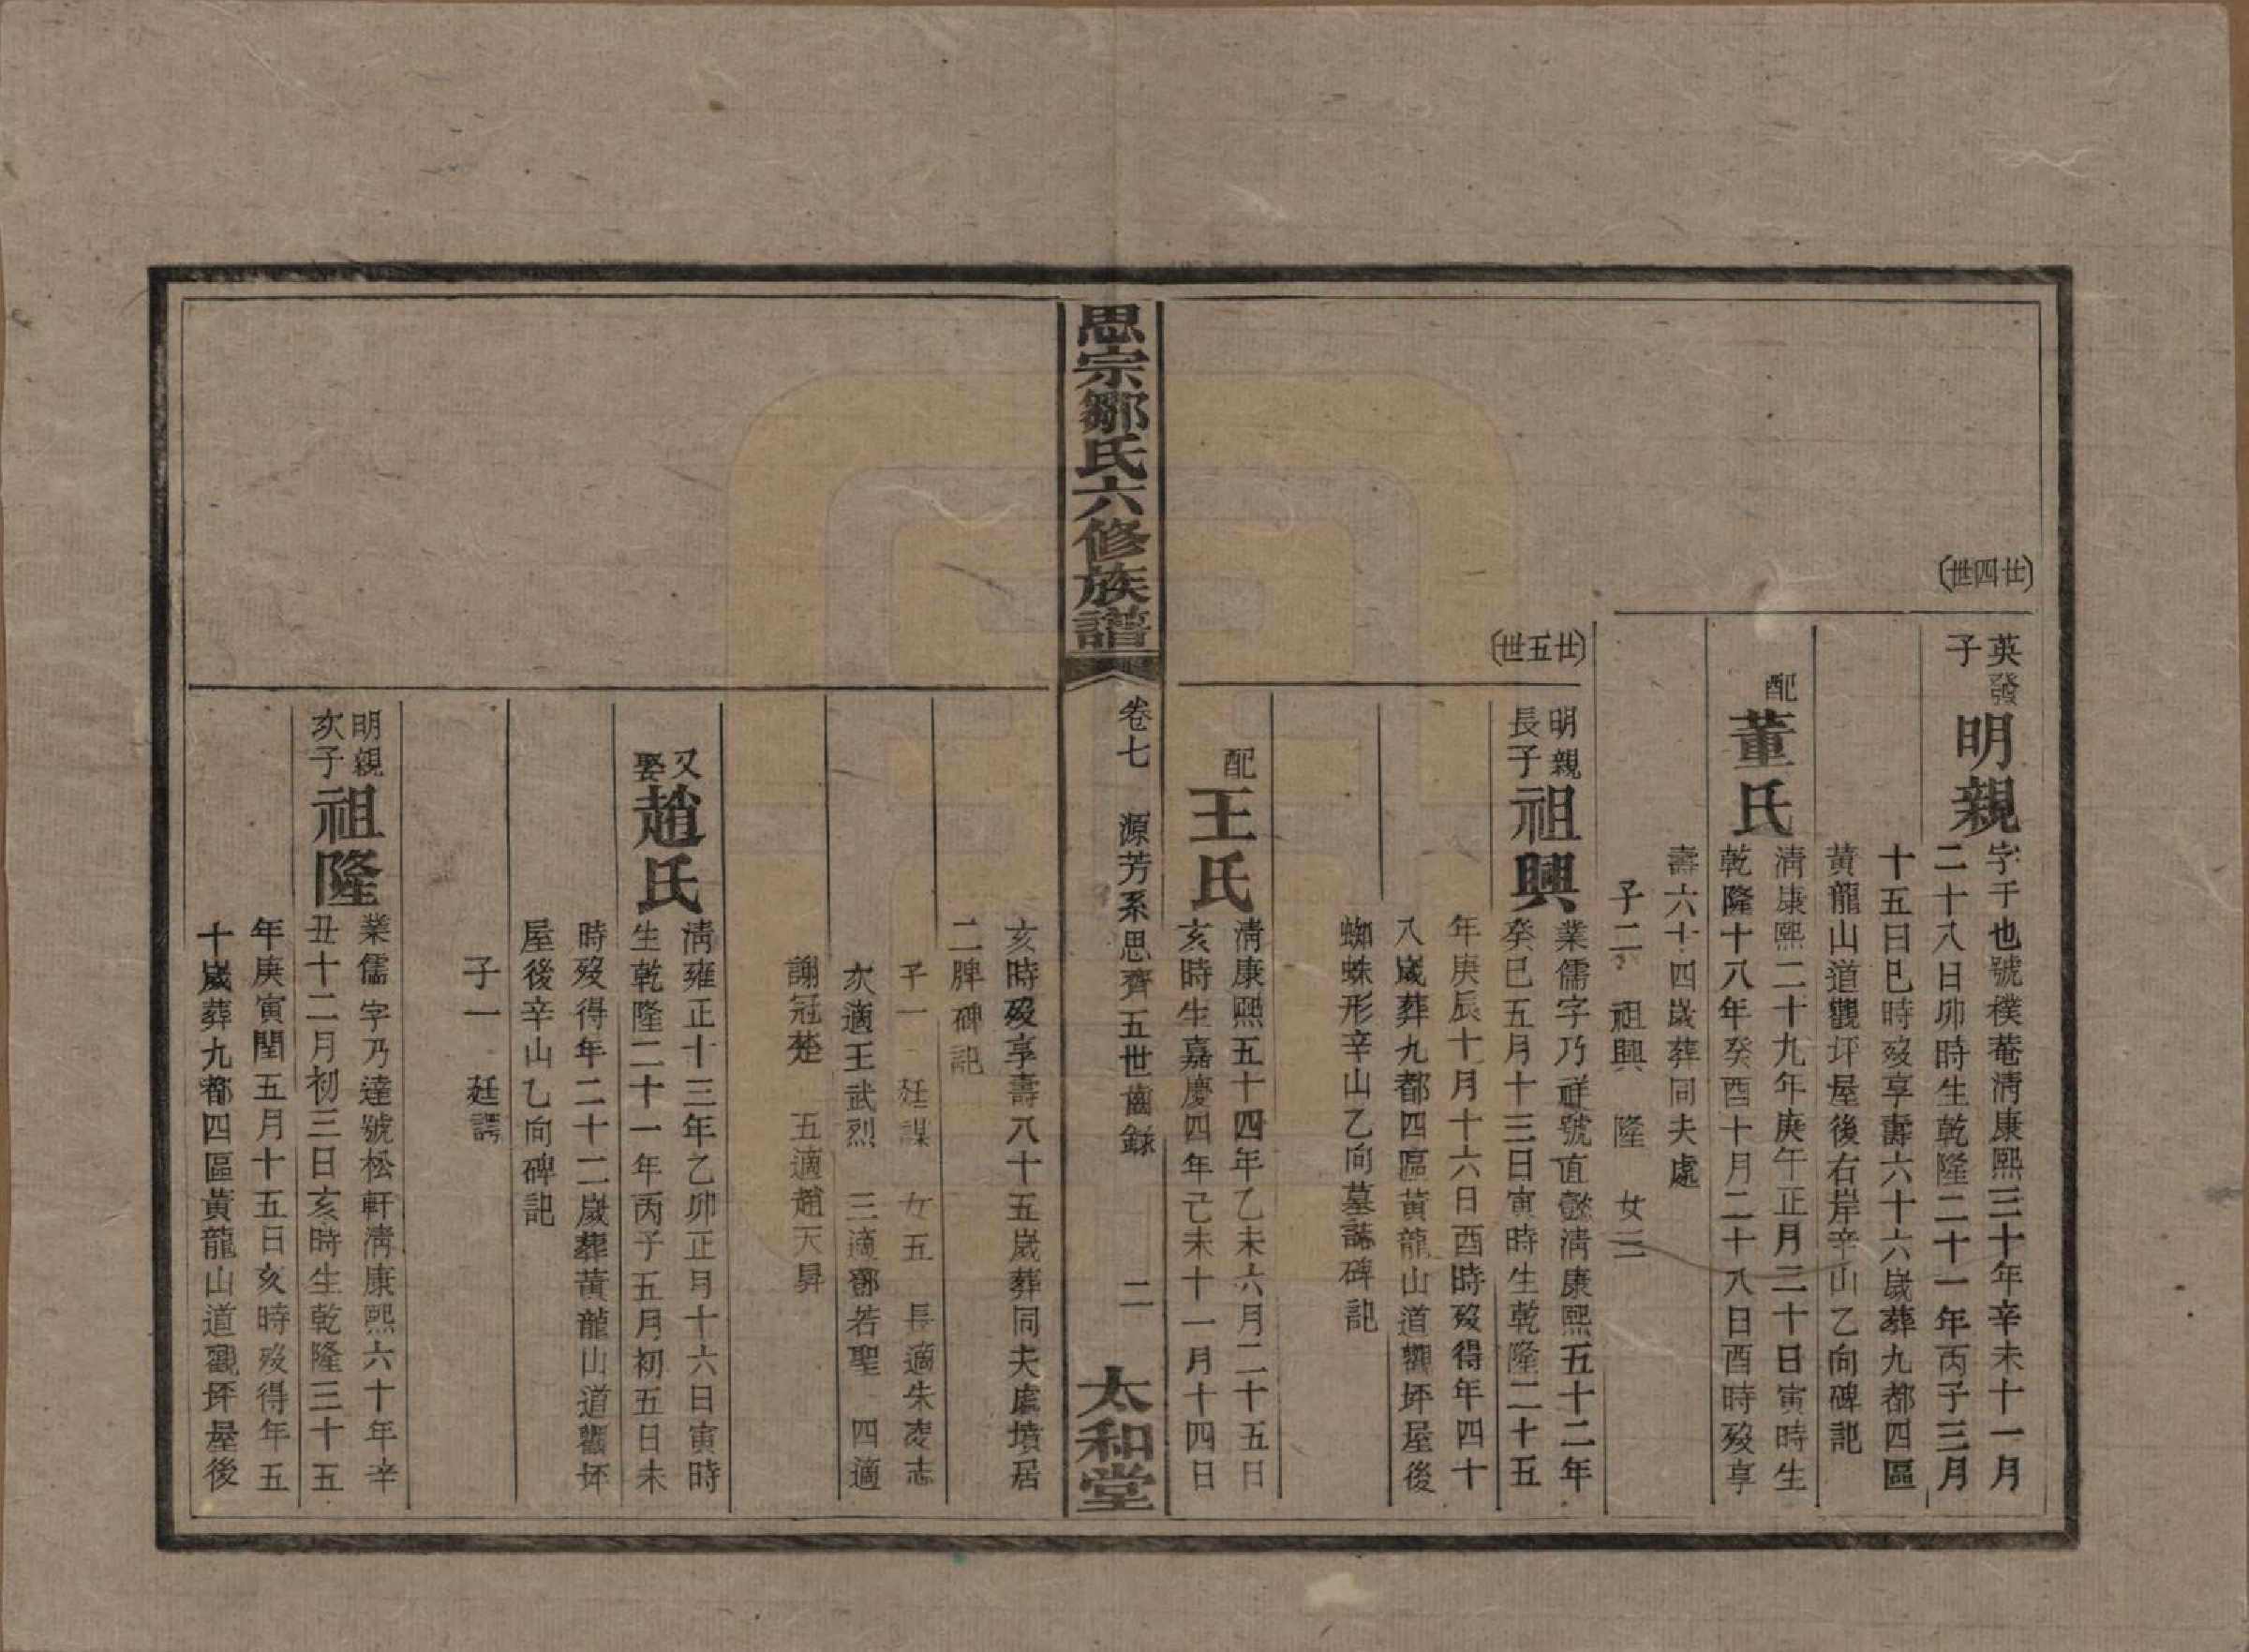 廿四世
英發
子
明親
字于也號樸菴淸康熙三十年辛未十一月
二十八日卯時生乾隆二十一年丙子三月
十五日巳時歿享壽六十六歲葬九都四區
黃龍山道觀坪屋後右岸辛山乙向碑記
配
董氏
淸康熙二十九年庚午正月二十日寅時生
乾隆十八年癸酉十月二十八日酉時歿享
壽六十四歲葬同夫處
子二 祖興 隆 女三
廿五世
明親
長子
祖興
業儒字乃祥號直懿淸康熙五十二年
癸巳五月十三日寅時生乾隆二十五
年庚辰十月十六日酉時歿得年四十
八歲葬九都四區黃龍山道觀坪屋後
蜘蛛形辛山乙向墓誌碑記
配
王氏
淸康熙五十四年乙未六月二十五日
亥時生嘉慶四年己未十一月十四日
思宗鄒氏六修族譜
卷七 源芳系思齊五世齒錄 二
太和堂
亥時歿享壽八十五歲葬同夫處墳居
二脾碑記
子一 廷謀 女五 長適朱凌志
次適王武烈 三適鄒若聖 四適
謝冠楚 五適趙天昇
又
娶
趙氏
淸雍正十三年乙卯正月十六日寅時
生乾隆二十一年丙子五月初五日未
時歿得年二十二歲葬黃龍山道觀坪
屋後辛山乙向碑記
子一 廷諤
明親
次子
祖隆
業儒字乃達號松軒淸康熙六十年辛
丑十二月初三日亥時生乾隆三十五
年庚寅閏五月十五日亥時歿得年五
十歲葬九都四區黃龍山道觀坪屋後